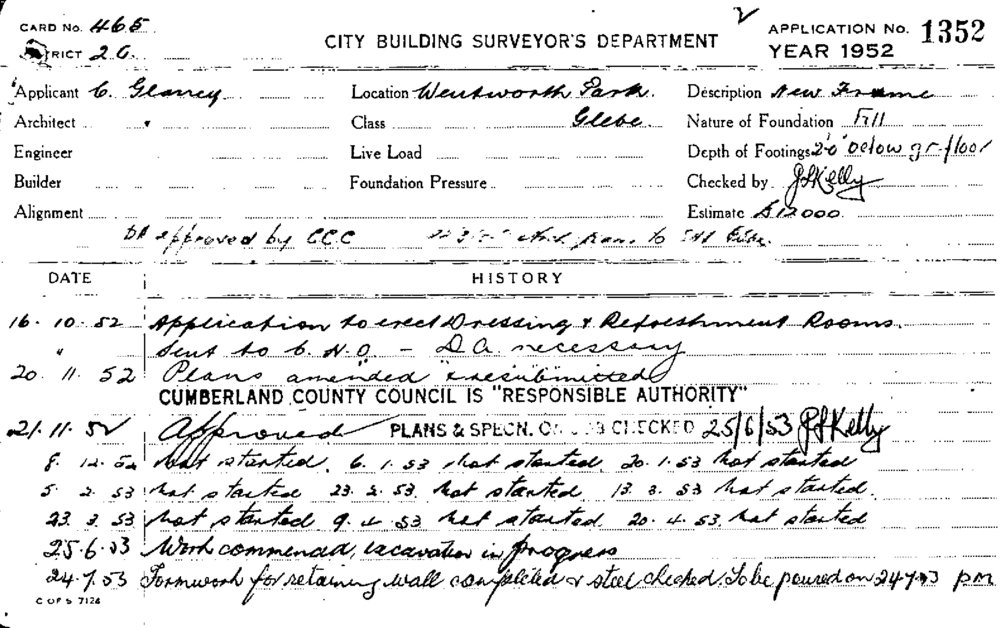 CARD No. 465
CITY BUILDING SURVEYOR'S DEPARTMENT
APPLICATION No. 1352
DISTRICT 2G.
YEAR 1952
Applicant C. Glancy Location Wentworth Park. Description New Frame
Architect Class Glebe. Nature of Foundation Fill
Engineer Live Load Depth of Footings 2'0" below gr. floor
Builder Foundation Pressure Checked by JLKelly
Alignment Estimate £12000.
DA approved by CCC plans to
DATE HISTORY
16. 10. 52 Application to erect Dressing & Refreshment Rooms.
" Sent to C.N.O - D.A. necessary
20. 11. 52 Plans amended & resubmitted
CUMBERLAND COUNTY COUNCIL IS "RESPONSIBLE AUTHORITY"
21. 11. 52 Approved PLANS & SPECN. CHECKED 25/6/53 JLKelly
8. 12. 52 Not started. 6. 1. 53 Not started. 20. 1. 53 Not started
5. 2. 53 Not started 23. 2. 53. Not started. 13. 3. 53 Not started.
23. 3. 53 Not started 9. 4. 53 Not started. 20. 4. 53. Not started
25.6.53 Work commenced, excavation in progress
24.7.53 Formwork for retaining wall completed & steel checked. To be poured on 24.7.53 pm
C OF S 7128